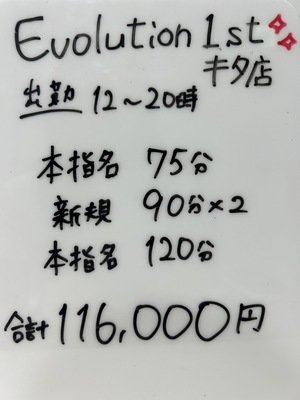 Evolution 1st
キタ店
出勤 12～20時
本指名 75分
新規 90分×2
本指名 120分
合計 116,000円